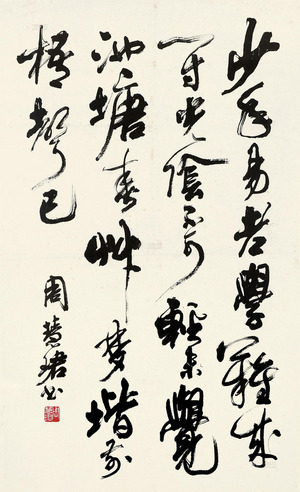 少年易老學難成
一寸光陰不可輕未覺
池塘春艸夢堦前
梧聲已
周慧珺书